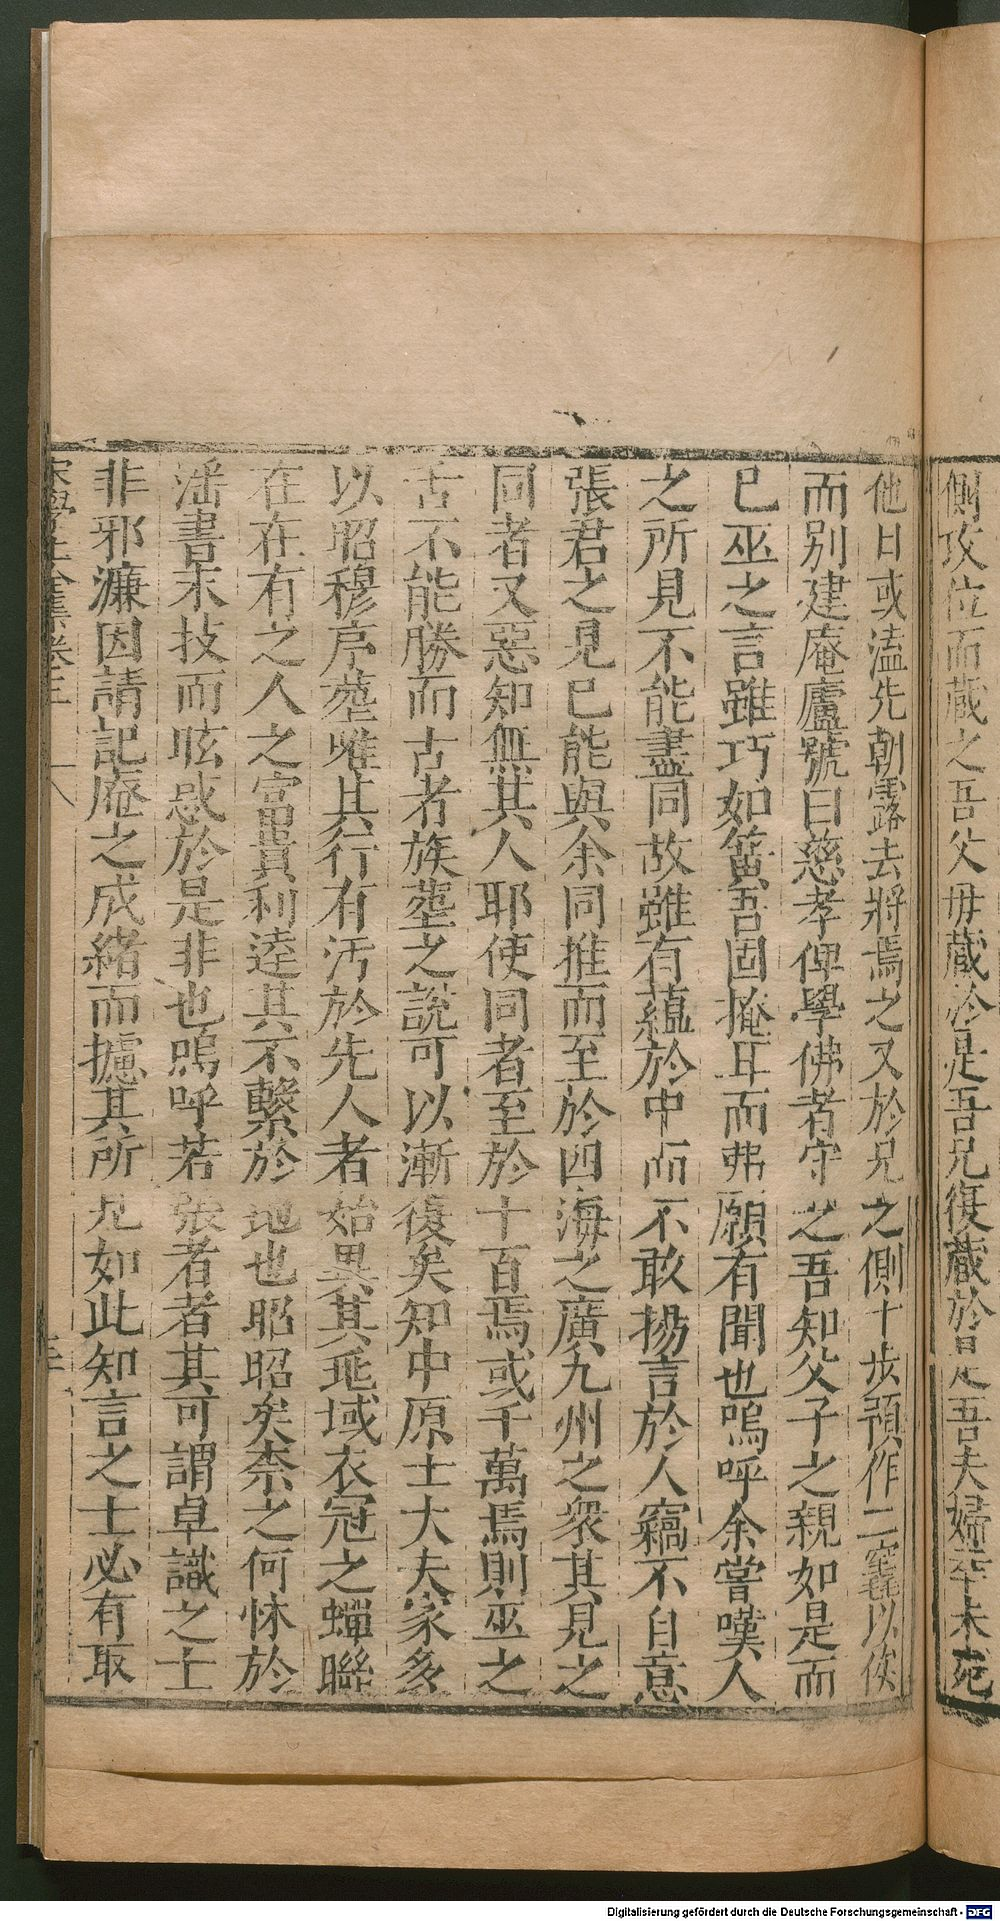 側攻位而藏之吾父毋藏於是吾兄復藏於是吾夫婦幸未死
他日或溘先朝露去將焉之又於兄之側十步預作二竁以俟
而別建庵廬號曰慈孝俾學佛者守之吾知父子之親如是而
已巫之言雖巧如簧吾固掩耳而弗願有聞也嗚呼余嘗嘆人
之所見不能盡同故雖有蘊於中而不敢揚言於人竊不自意
張君之見已能與余同推而至於四海之廣九州之衆其見之
同者又惡知無其人耶使同者至於十百焉或千萬焉則巫之
舌不能勝而古者族塟之說可以漸復矣知中原士大夫家多
以昭穆序塟唯其行有汚於先人者始異其兆域衣冠之蟬聯
在在有之人之富貴利達其不繫於地也昭昭矣柰之何怵於
滛書末技而眩惑於是非也嗚呼若張者者其可謂卓識之士
非邪濂因請記庵之成緒而攄其所見如此知言之士必有取
宋學士全集卷三 十八